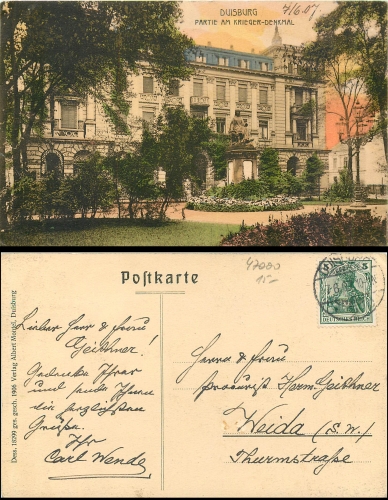 DUISBURG
PARTIE AM KRIEGER-DENKMAL
7/6.07
47000
15.-
Postkarte
Lieber Herr & Frau
Geithner!
Gedenke Ihrer
und sende Ihnen
die herzlichsten
Grüße.
Ihr
Carl Wende
Herrn & Frau
Procurist Herm. Geithner
Weida (S.W.)
Thurmstraße
DEUTSCHES REICH
Dess. 18299 ges. gesch. 1906 Verlag Albert Mentzl, Duisburg